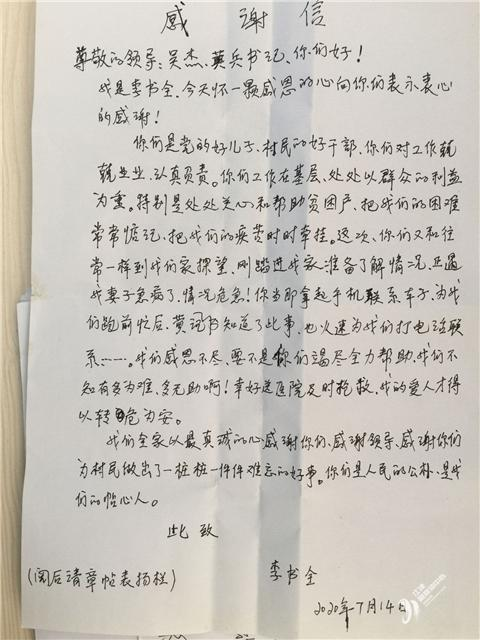 感谢信
尊敬的领导:吴杰、英兵书记、你们好!
我是李书全,今天怀一颗感恩的心向你们表示衷心
的感谢!
你们是党的好儿子、村民的好干部、你们对工作兢
兢业业、认真负责。你们工作在基层、处处以群众的利益
为重。特别是处处关心和帮助贫困户、把我们的困难
常常惦记、把我们的疾苦时时牵挂。这次、你们又和往
常一样到我们家探望、刚踏进我家准备了解情况、正遇
我妻子急病了、情况危急!你当即拿起手机联系车子、为我
们跑前忙后、黄河书知道了此事、也火速为我们打电话联
系……。我们感恩不尽、要不是你们竭尽全力帮助、我们不
知有多为难、多无助啊!幸好送医院及时抢救、我的爱人才得
以转危为安。
我们全家以最真诚的心感谢你们、感谢领导、感谢你们
为村民做出了一桩桩一件件难忘的好事。你们是人民的公朴、是我
们的帖心人。
此致
(阅后请章帖表扬栏)
李书全
2020年7月14日